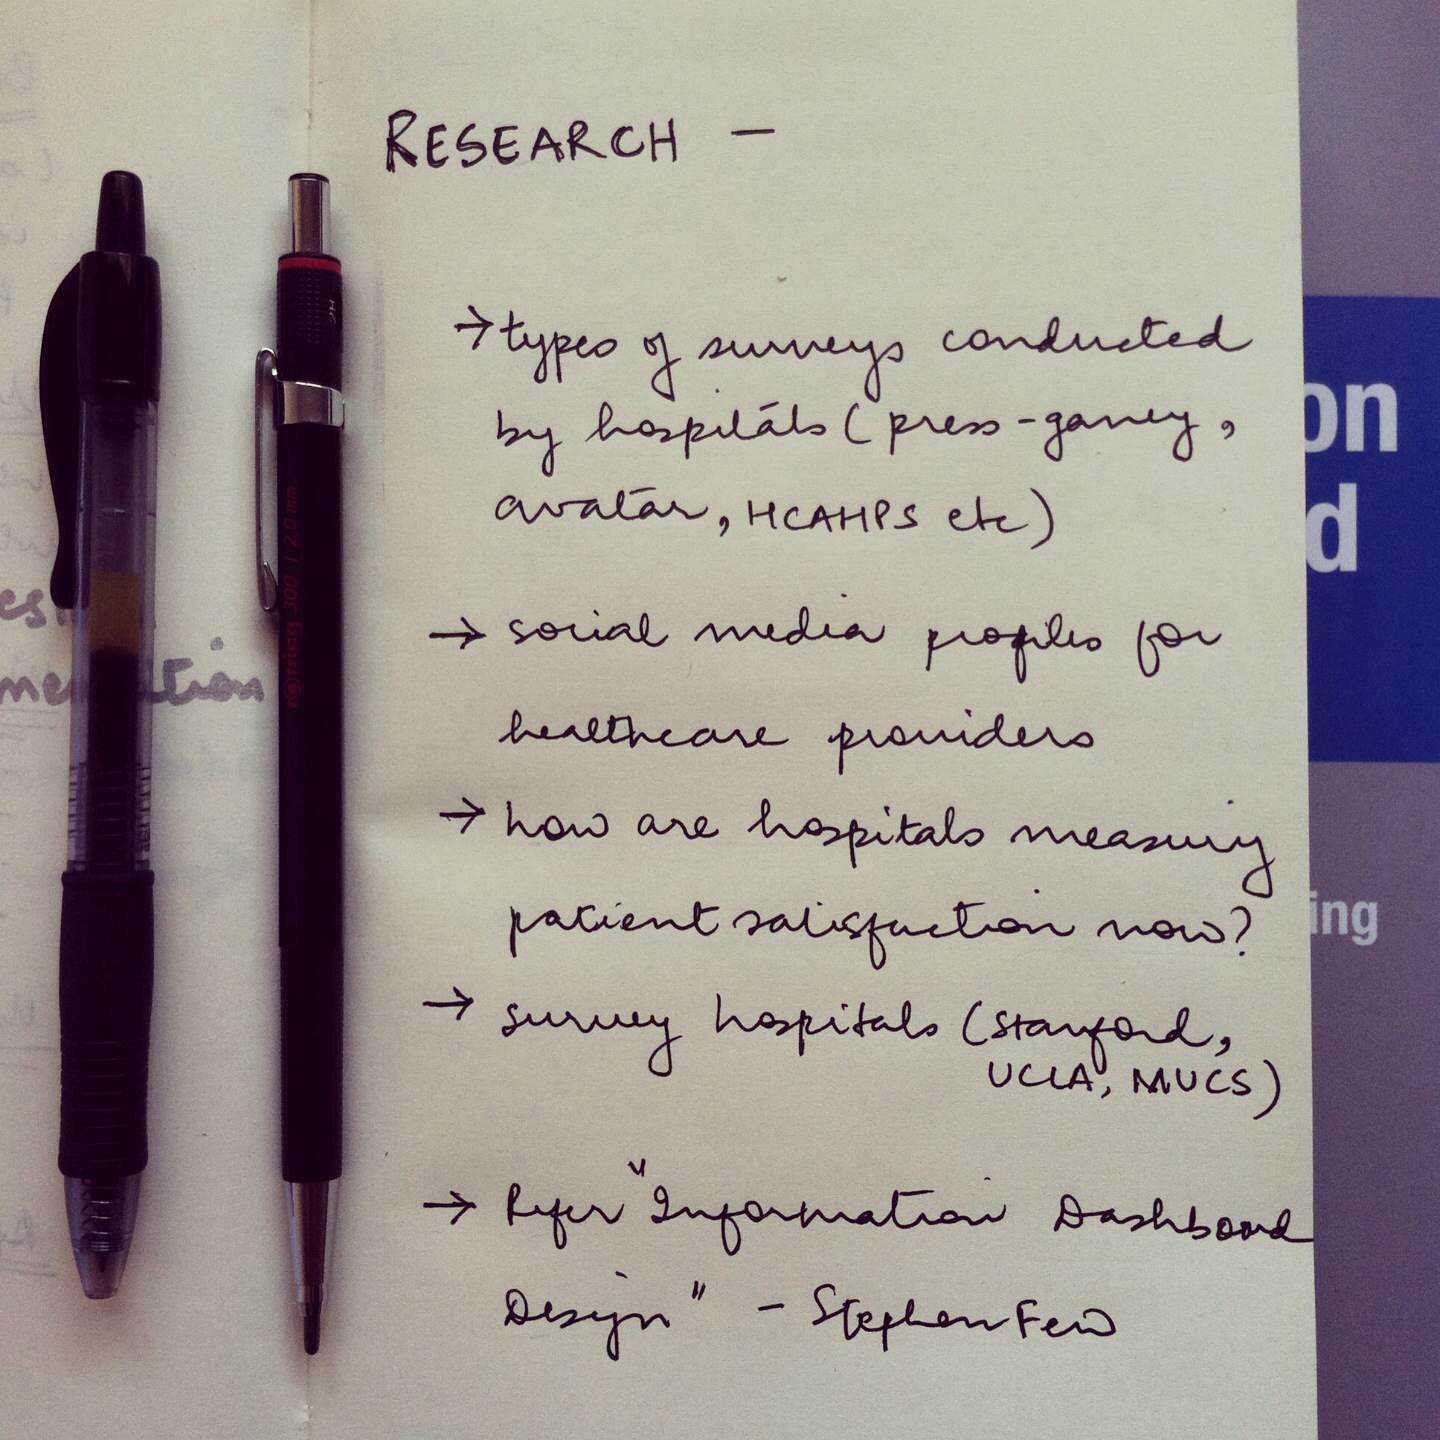 RESEARCH —
→ types of surveys conducted
by hospitals (press-ganey,
avatar, HCAHPS etc)
→ social media profiles for
healthcare providers
→ how are hospitals measuring
patient satisfaction now?
→ survey hospitals (Stanford,
UCLA, MUCS)
→ Refer "Information Dashboard
Design" - Stephen Few
rotring 300 | 2.0 mm
on
d
ing